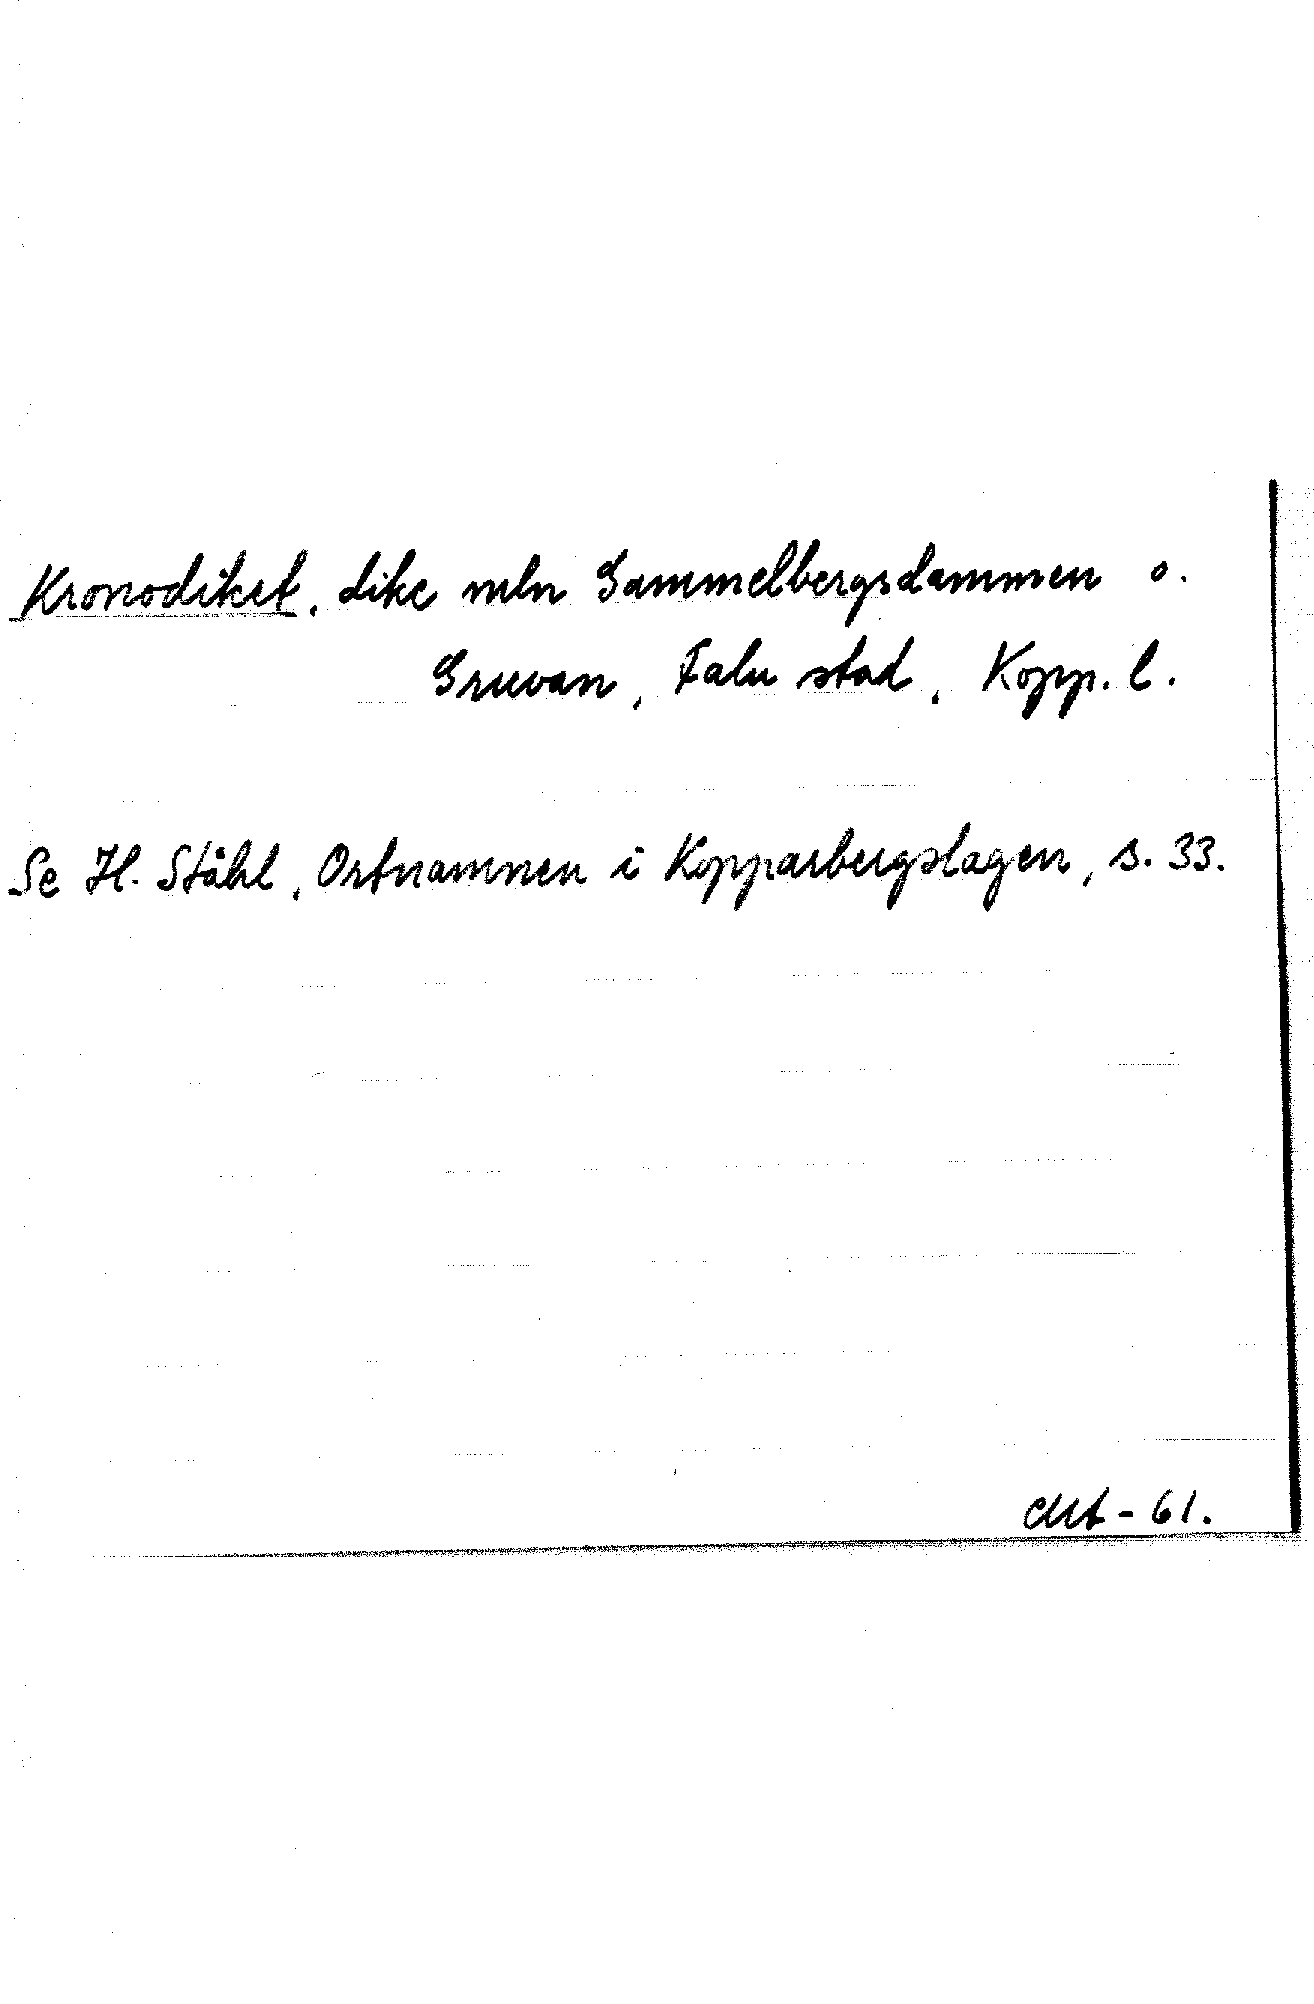 Kronodiket, dike mln Gammelbergsdammen o.
Gruvan, Falu stad, Kopp. l.
Se H. Ståhl, Ortnamnen i Kopparbergslagen, s. 33.
-61.